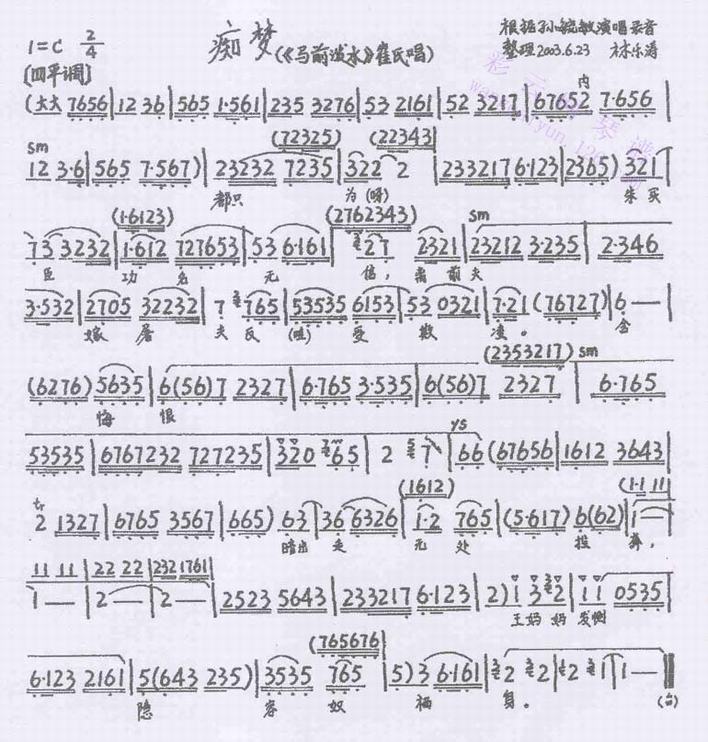 痴梦(《马前泼水》崔氏唱)
根据孙毓敏演唱录音
整理2003.6.23 林乐涛
1=C 2/4
(四平调)
(大大 7656|12 36|565 1·561|235 3276|53 2161|52 3217|67652 7·656|
内
sm
12 3·6|565 7·567)|23232 7235|322 2|233217 6·123|2365) 321|
(72325) (22343)
都只 为(呀) 朱买
(1·6123) (2762343) sm
73 3232|1·612 727653|53 6·161|27 2321|23212 3·235|2·346
臣 功名 无 前夫
3·532|2705 32232|7 765|53535 6153|53 0321|7·21 (76727)|6 —|
嫁屠 夫反(哇)受 欺 凌。 含
(2353217) sm
(6276) 5635|6(56)7 2327|6·765 3·535|6(56)7 2327|6·765
悔 恨
ys
53535|6767232 727235|320 3265|2 7|66 (67656|1612 3643|
(1612) (1·1 11|
tr
2 1327|6765 3567|665) 63|36 6326|1·2 765|(5·617) 6(62)|1
暗出走 无处 投奔,
11 11|22 22|2321761|
1 —|2 —|2 —|2523 5643|233217 6·123|2) 1 32|11 0535|
王妈妈发恻
(765676)
6·123 2161|5(643 235)|3535 765|5) 3 6·161|2 2|2 1|1 —‖
隐 容奴 栖 身。 (台)